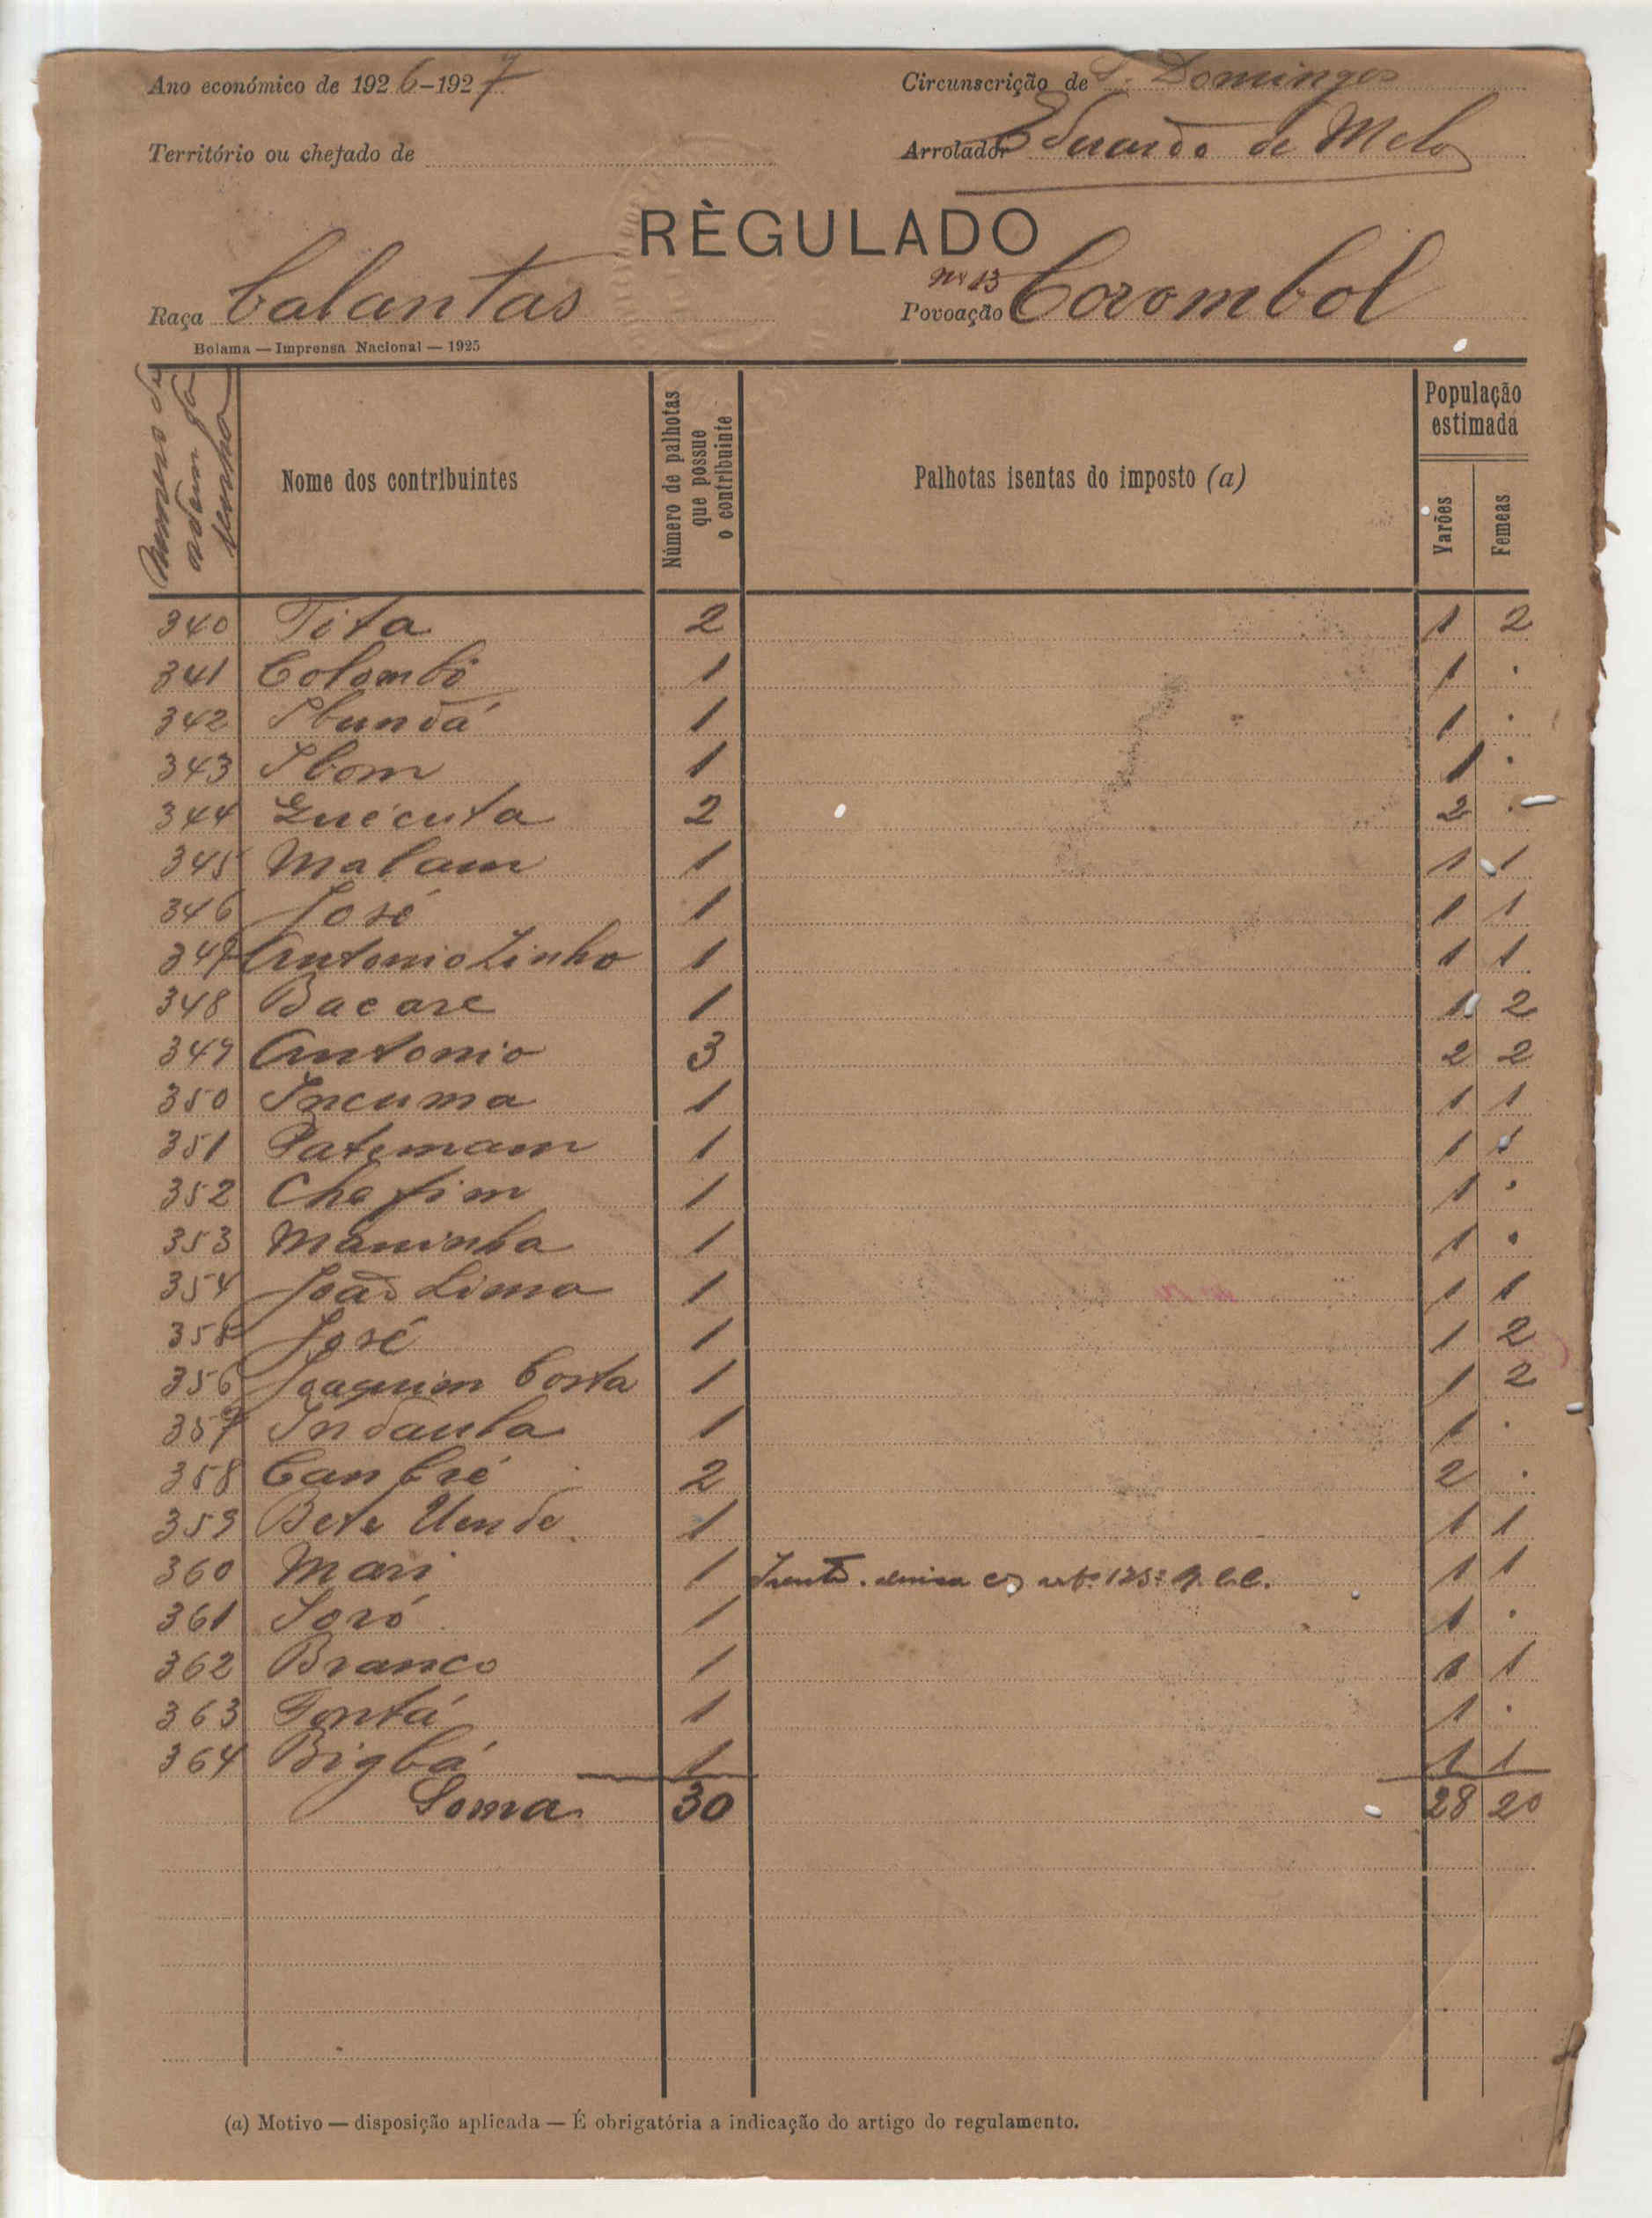 Ano económico de 1926-1927
Circunscrição de S. Domingos
Território ou chefado de
Arrolador Eduardo de Melo
RÈGULADO
Raça Balantas
Nº 13
Povoação Corombol
Bolama — Imprensa Nacional — 1925
Numero de ordem da senha
Nome dos contribuintes
Número de palhotas que possue o contribuinte
Palhotas isentas do imposto (a)
População estimada
Varões
Femeas
340 Tita 2 1 2
341 Colombó 1 1 .
342 Ibundá 1 1 .
343 Ibom 1 1 .
344 Guécuta 2 2 .
345 Malam 1 1 1
346 José 1 1 1
347 Antonio Zinho 1 1 1
348 Bacare 1 1 2
349 Antonio 3 2 2
350 Incuma 1 1 1
351 Patemam 1 1 1
352 Chefim 1 1 .
353 Maninha 1 1 .
354 João Lima 1 1 1
355 José 1 1 2
356 Joaquim Costa 1 1 2
357 Indaula 1 1 .
358 Canbré 2 2 .
359 Bete Uende 1 1 1
360 Mari 1 1 1
361 Joró 1 1 .
362 Branco 1 1 1
363 Fontá 1 1 .
364 Bigbá 1 1 1
Soma 30 28 20
(a) Motivo — disposição aplicada — É obrigatória a indicação do artigo do regulamento.